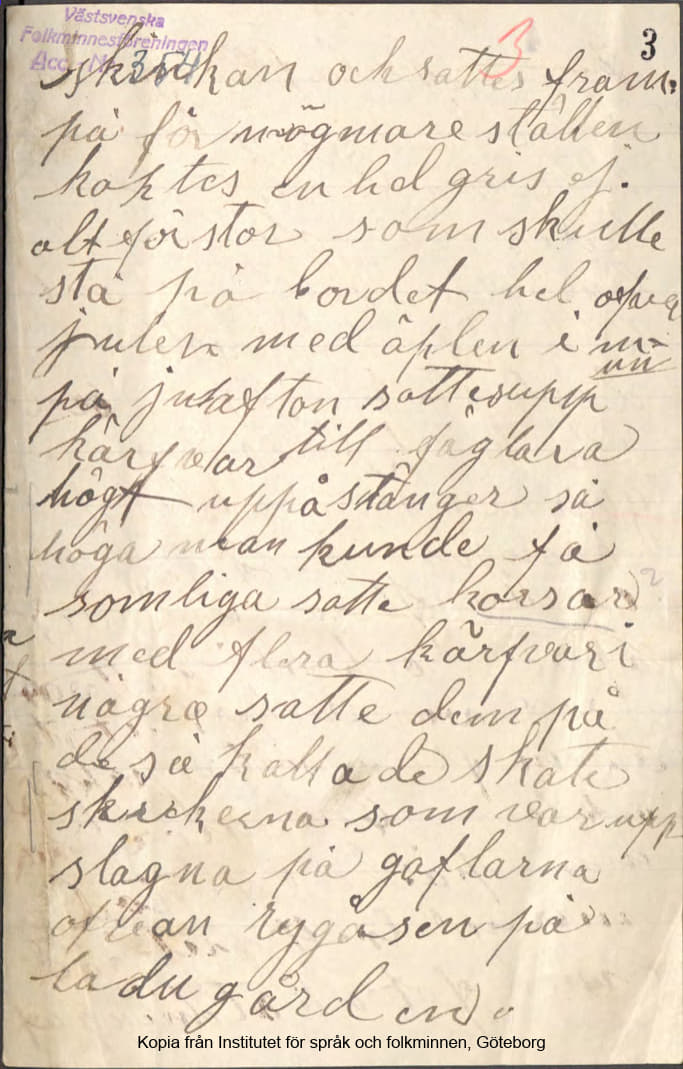 Västsvenska
Folkminnesföreningen
Acc. Nr. 354
3
3
skinkan och sattes fram.
på förmögmare ställen
koktes en hel gris ej.
alt förstor som skulle
stå på bordet hel öfver
julen med äplen i m-
un
på julafton sattesupp
kärfvar till fåglara
högt uppå stänger så
höga man kunde få
somliga satte korsar ?
med flera kärfvar i
några satte dem på
de så kallade skate
skrikerna som var upp
slagna på gaflarna
ofvan rygåsen på
ladugården.
Kopia från Institutet för språk och folkminnen, Göteborg